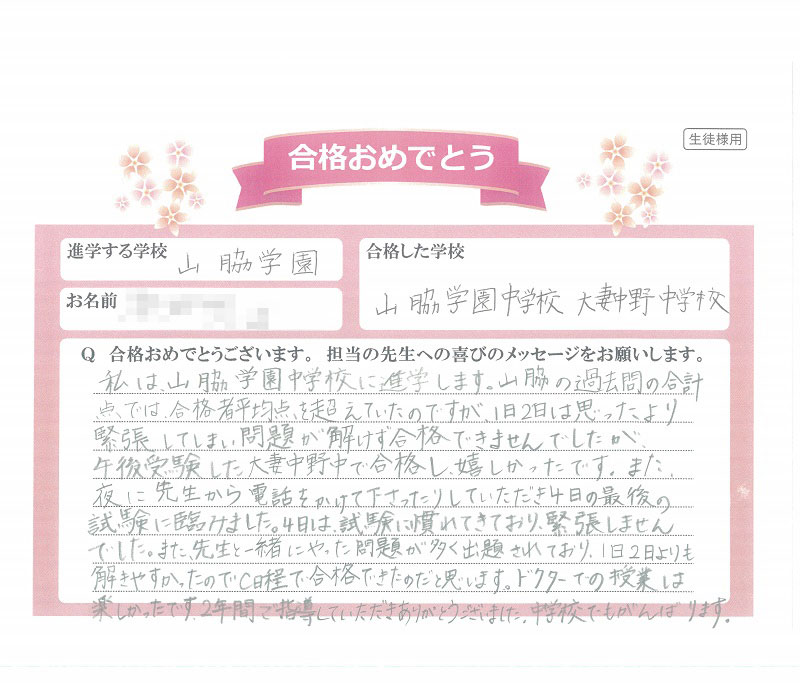 生徒様用
合格おめでとう
進学する学校 山脇学園
合格した学校
お名前
山脇学園中学校 大妻中野中学校
Q 合格おめでとうございます。担当の先生への喜びのメッセージをお願いします。
私は、山脇学園中学校に進学します。山脇の過去問の合計
点では、合格者平均点を超えていたのですが、1日2日は思ったより
緊張してしまい問題が解けず合格できませんでしたが、
午後受験した大妻中野中で合格し、嬉しかったです。また、
夜に先生から電話をかけて下さったりしていただき4日の最後の
試験に臨みました。4日は、試験に慣れてきており、緊張しません
でした。また、先生と一緒にやった問題が多く出題されており、1日2日よりも
解きやすかったのでC日程で合格できたのだと思います。ドクターでの授業は
楽しかったです。2年間ご指導していただきありがとうございました。中学校でもがんばります。